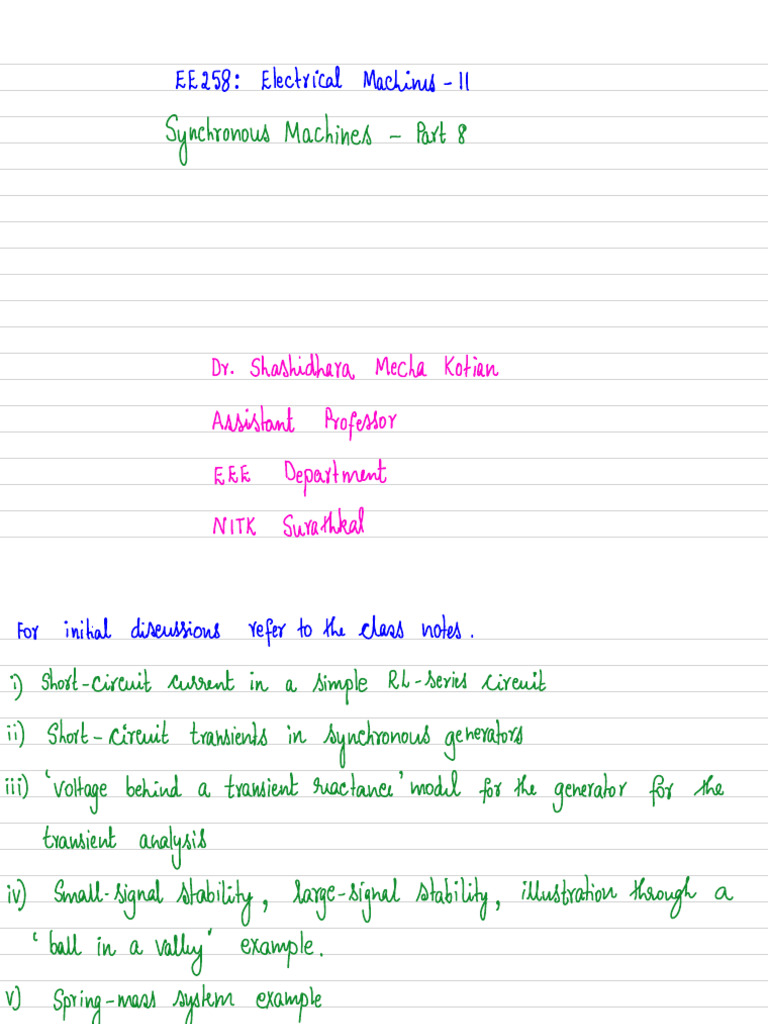 EE258: Electrical Machines - II
Synchronous Machines - Part 8
Dr. Shashidhara Mecha Kotian
Assistant Professor
EEE Department
NITK Surathkal
For initial discussions refer to the class notes.
i) Short-circuit current in a simple RL-series circuit
ii) Short-circuit transients in synchronous generators
iii) 'voltage behind a transient reactance' model for the generator for the
transient analysis
iv) Small-signal stability, large-signal stability, illustration through a
'ball in a valley' example.
v) Spring-mass system example